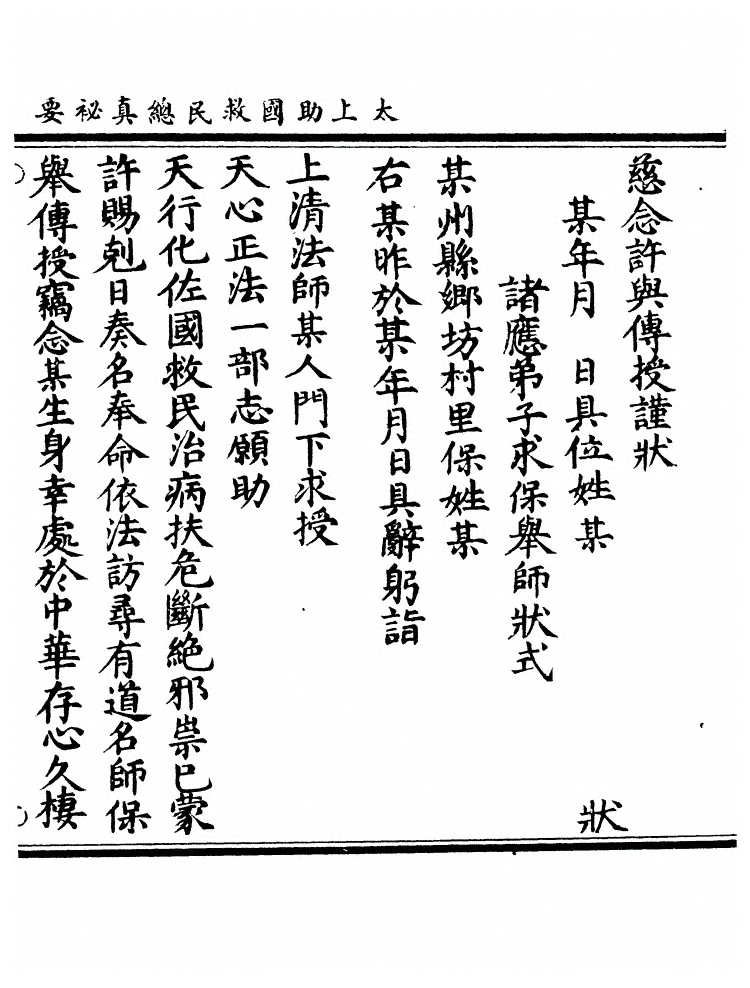 太上助國救民總真祕要
慈念許與傳授謹狀
某年月　日具位姓某　狀
諸應弟子求保舉師狀式
某州縣鄉坊村里保姓某
右某昨於某年月日具辭躬詣
上清法師某人門下求授
天心正法一部志願助
天行化佐國救民治病扶危斷絶邪祟已蒙
許賜剋日奏名奉命依法訪尋有道名師保
舉傳授竊念某生身幸處於中華存心久棲